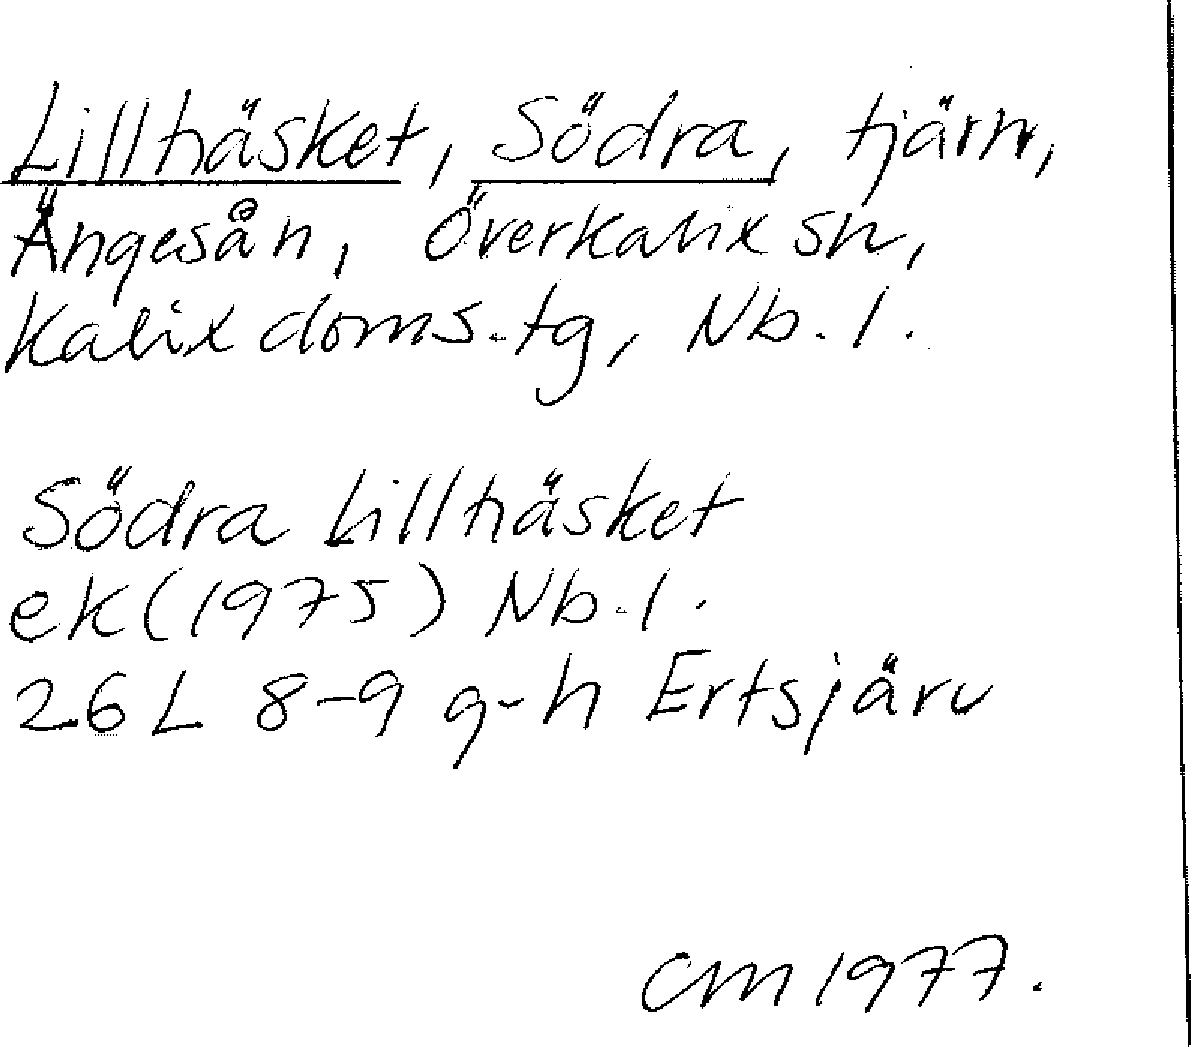 Lillträsket, Södra, tjärn,
Ängesån, Överkalix sn,
Kalix doms.tg, Nb.l.
Södra Lillträsket
ek (1975) Nb.l.
26 L 8-9 g-h Ertsjärv
CM 1977.